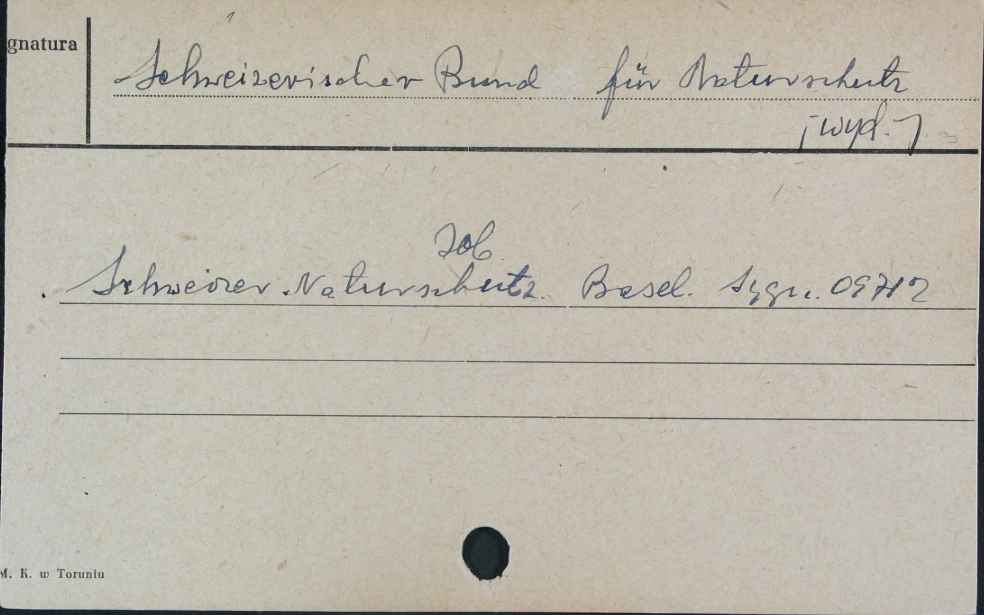 gnatura
Schweizerischer Bund für Naturschutz
[wyd.]
Zob.
Schweizer Naturschutz. Basel. Sygn. 09712
M. K. w Toruniu